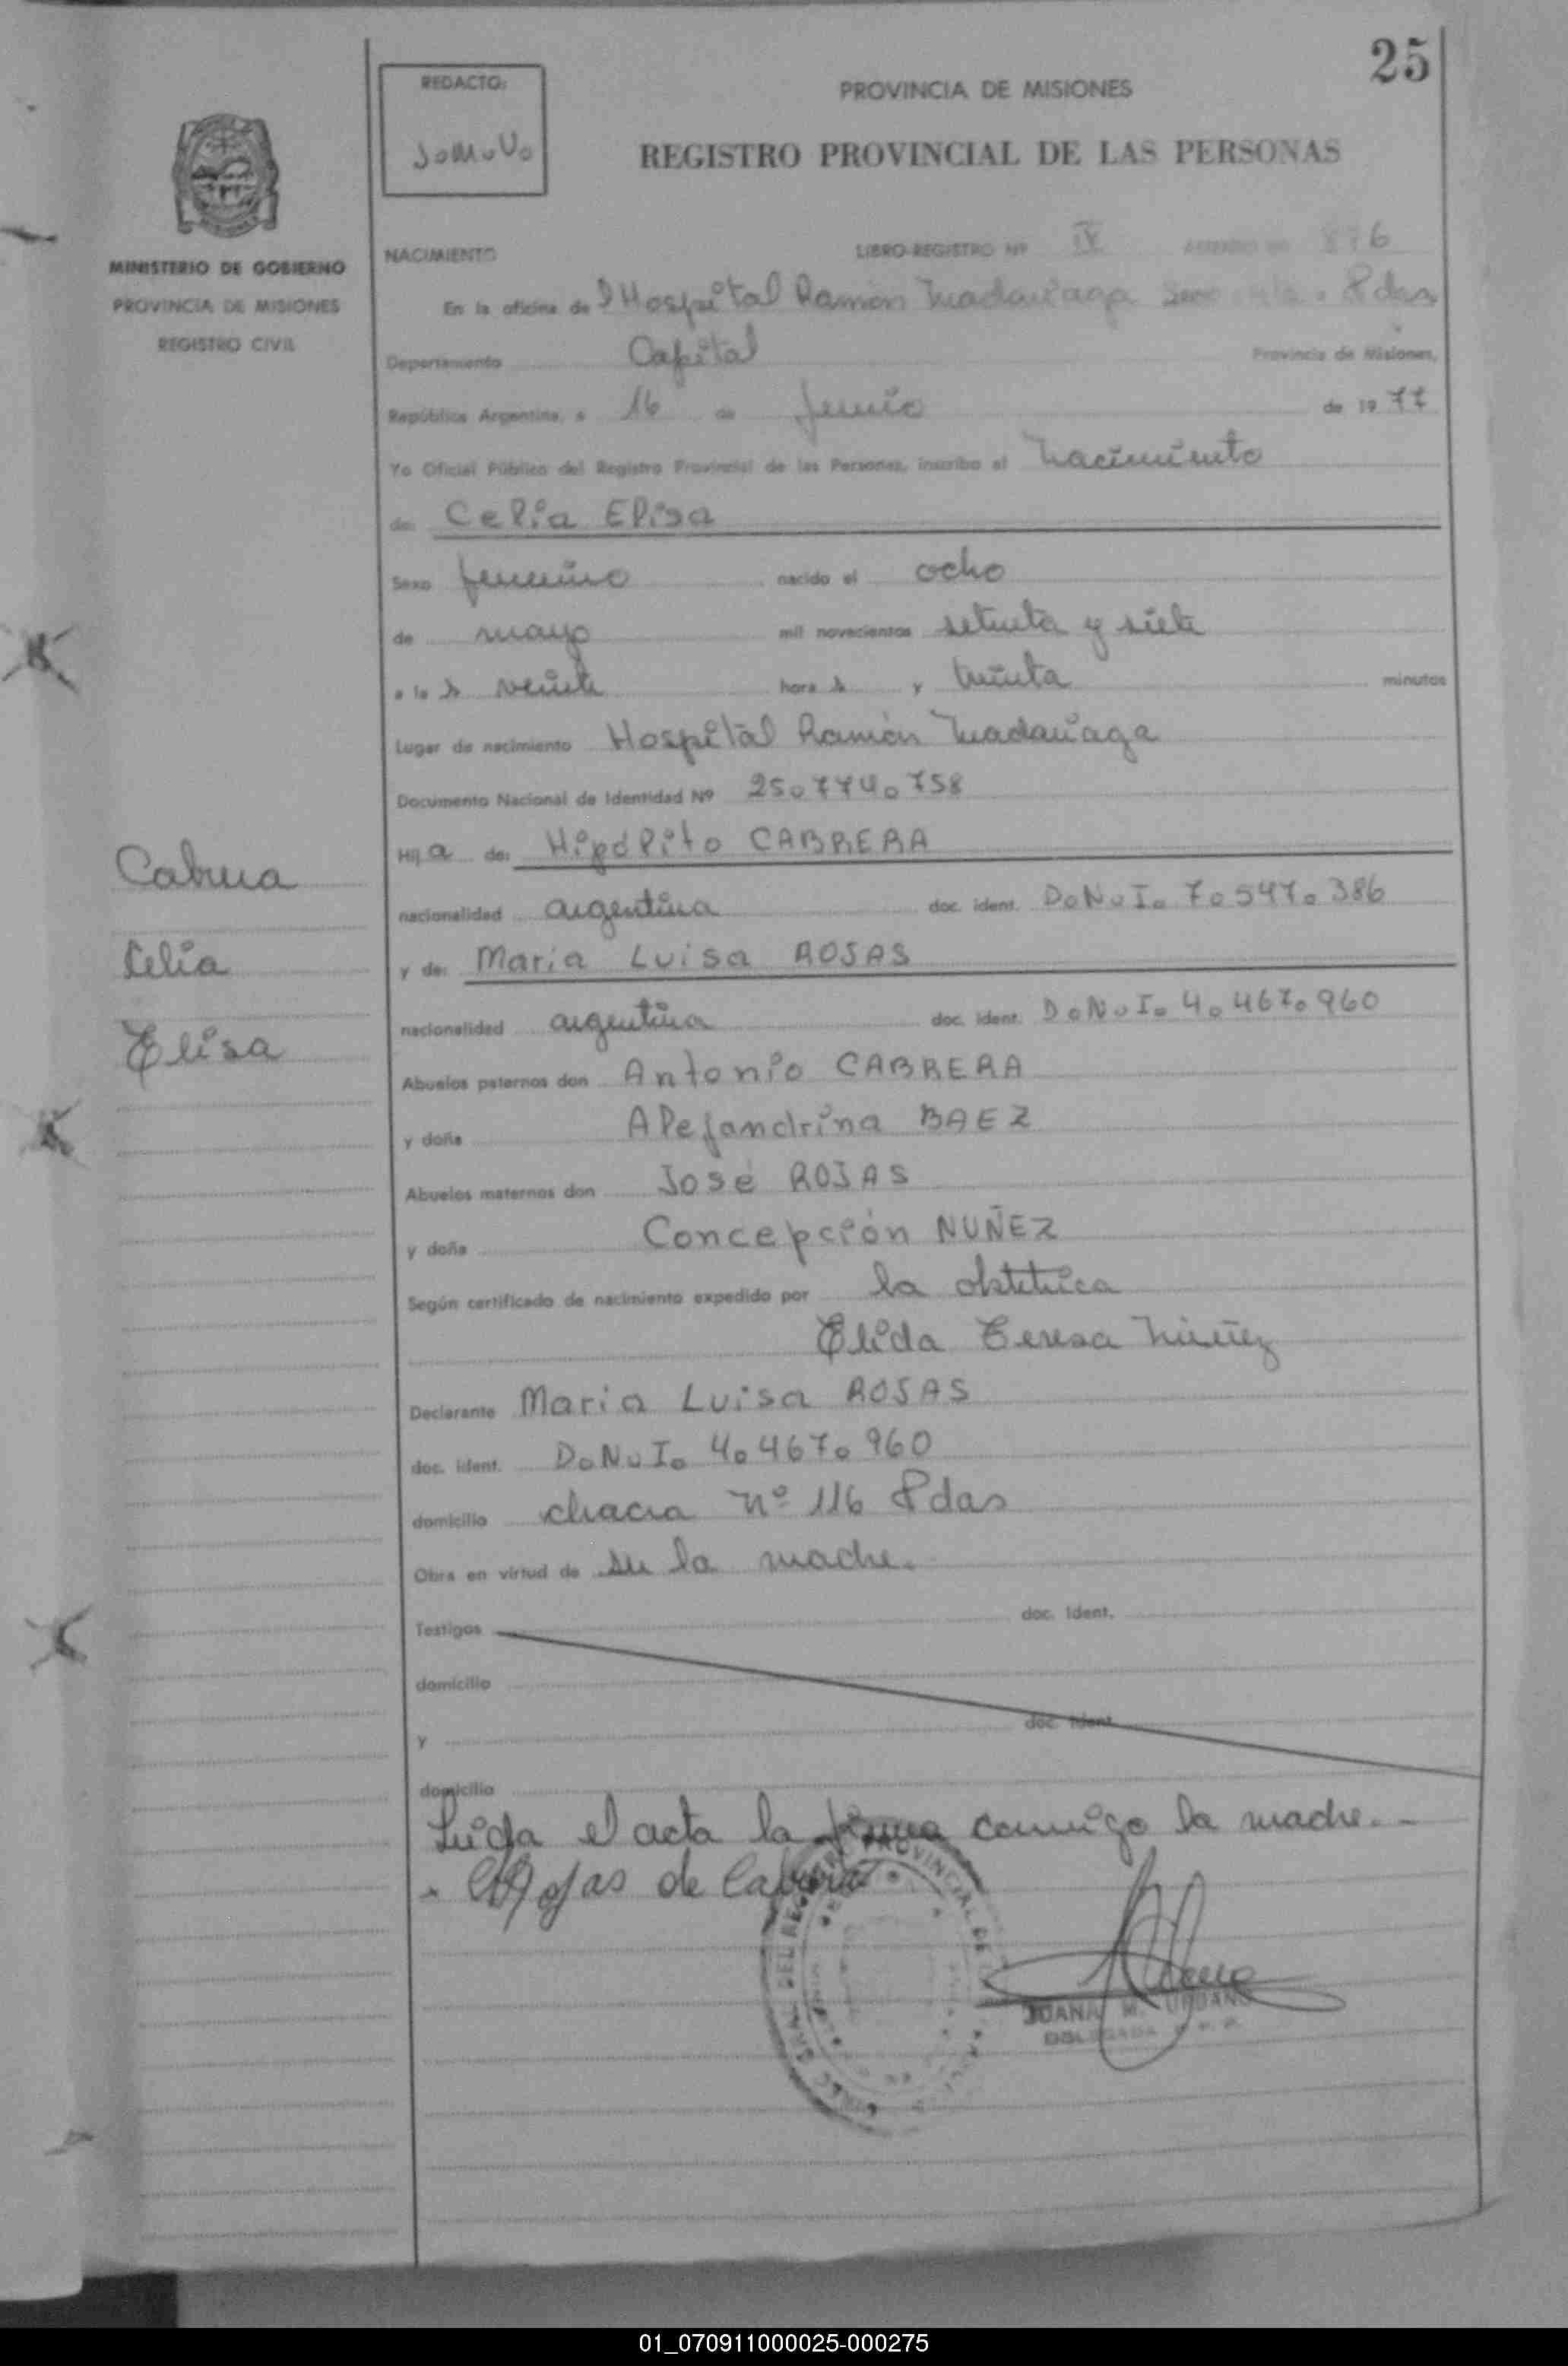 25
REDACTO:
J.M.U.
PROVINCIA DE MISIONES
REGISTRO PROVINCIAL DE LAS PERSONAS
MINISTERIO DE GOBIERNO
PROVINCIA DE MISIONES
REGISTRO CIVIL
NACIMIENTO LIBRO-REGISTRO Nº IV 876
En la oficina del Hospital Ramón Madariaga Pdas
Departamento Capital Provincia de Misiones,
República Argentina, a 16 de junio de 1977
Yo Oficial Público del Registro Provincial de las Personas, inscribo el nacimiento
de: Celia Elisa
Sexo femenino nacido el ocho
de mayo mil novecientos setenta y siete
a las veinte horas y treinta minutos
Lugar de nacimiento Hospital Ramón Madariaga
Documento Nacional de Identidad Nº 25.774.758
Hija de: Hipólito CABRERA
nacionalidad argentina doc. ident. D.N.I. 7.547.386
y de: Maria Luisa ROJAS
nacionalidad argentina doc. ident. D.N.I. 4.467.960
Abuelos paternos don Antonio CABRERA
y doña Alejandrina BAEZ
Abuelos maternos don José ROJAS
y doña Concepción NUÑEZ
Según certificado de nacimiento expedido por la obstétrica
Elida Teresa Núñez
Declarante Maria Luisa ROJAS
doc. ident. D.N.I. 4.467.960
domicilio chacra nº 116 Pdas
Obra en virtud de ser la madre.
Testigos doc. ident.
domicilio
y doc. ident.
domicilio
Leída el acta la firma conmigo la madre.-
Rojas de Cabrera
JUANA M. URBANO
DELEGADA
Cabrera
Celia
Elisa
01_070911000025-000275